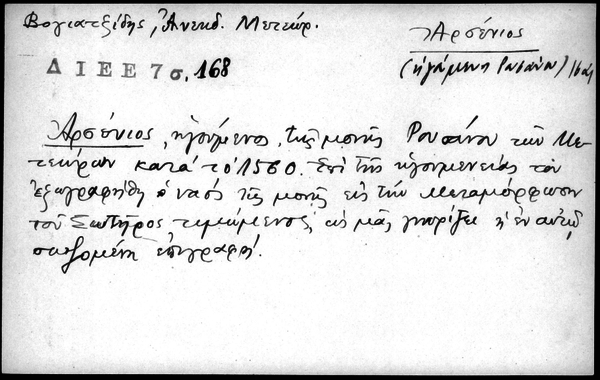 Βογιατζίδης, Ἀνεκδ. Μετεώρ.
Ἀρσένιος
Δ Ι Ε Ε 7 σ. 168
(ἡγούμενος Ρουσάνου)
Ἀρσένιος, ἡγούμενος τῆς μονῆς Ρουσάνου τῶν Με-
τεώρων κατά τό 1560. Ἐπί τῆς ἡγουμενείας του
ἐξωγραφήθη ὁ ναός τῆς μονῆς εἰς τήν Μεταμόρφωσιν
τοῦ Σωτῆρος τιμώμενος, ὡς μᾶς γνωρίζει ἡ ἐν αὐτῷ
σωζομένη ἐπιγραφή.